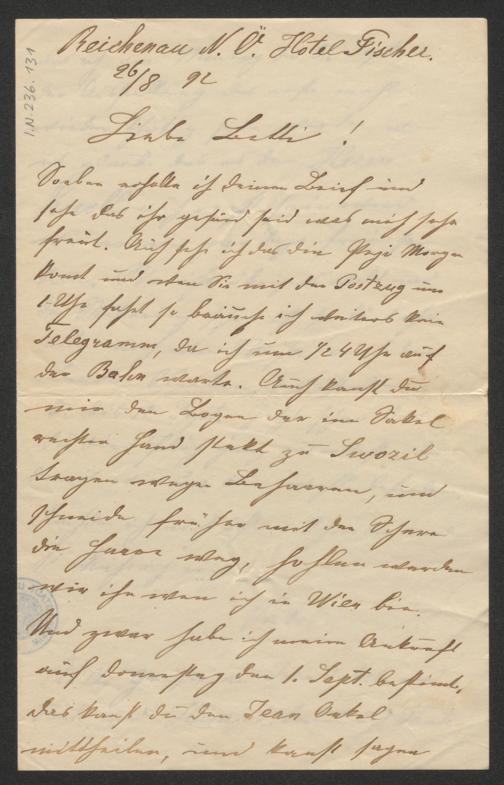 I.N. 236.131
Reichenau N. Ö. Hotel Fischer.
26/8 92
Liebe Betti!
Soeben erhalte ich deinen Brief und
sehe das ihr gesund seid was mich sehr
freut. Auch sehe ich das die Morgen
komt und wen Sie mit den Postzug um
1 Uhr fahrt so brauche ich weiters kein
Telegramm, da ich um 1/2 4 Uhr auf
der Bahn warte. Auch kanst du
mir den Bogen der im Sakel
rechter Hand stekt zu Swozil
tragen wegen Behaaren, und
schneide früher mit der Schere
die Haare weg, hohlen werden
wir ihn wen ich in Wien bin.
Und zwar habe ich meine Ankunft
auf Donerstag den 1. Sept. bestimt,
das kanst du den Jean Onkel
mittheilen, und kanst sagen